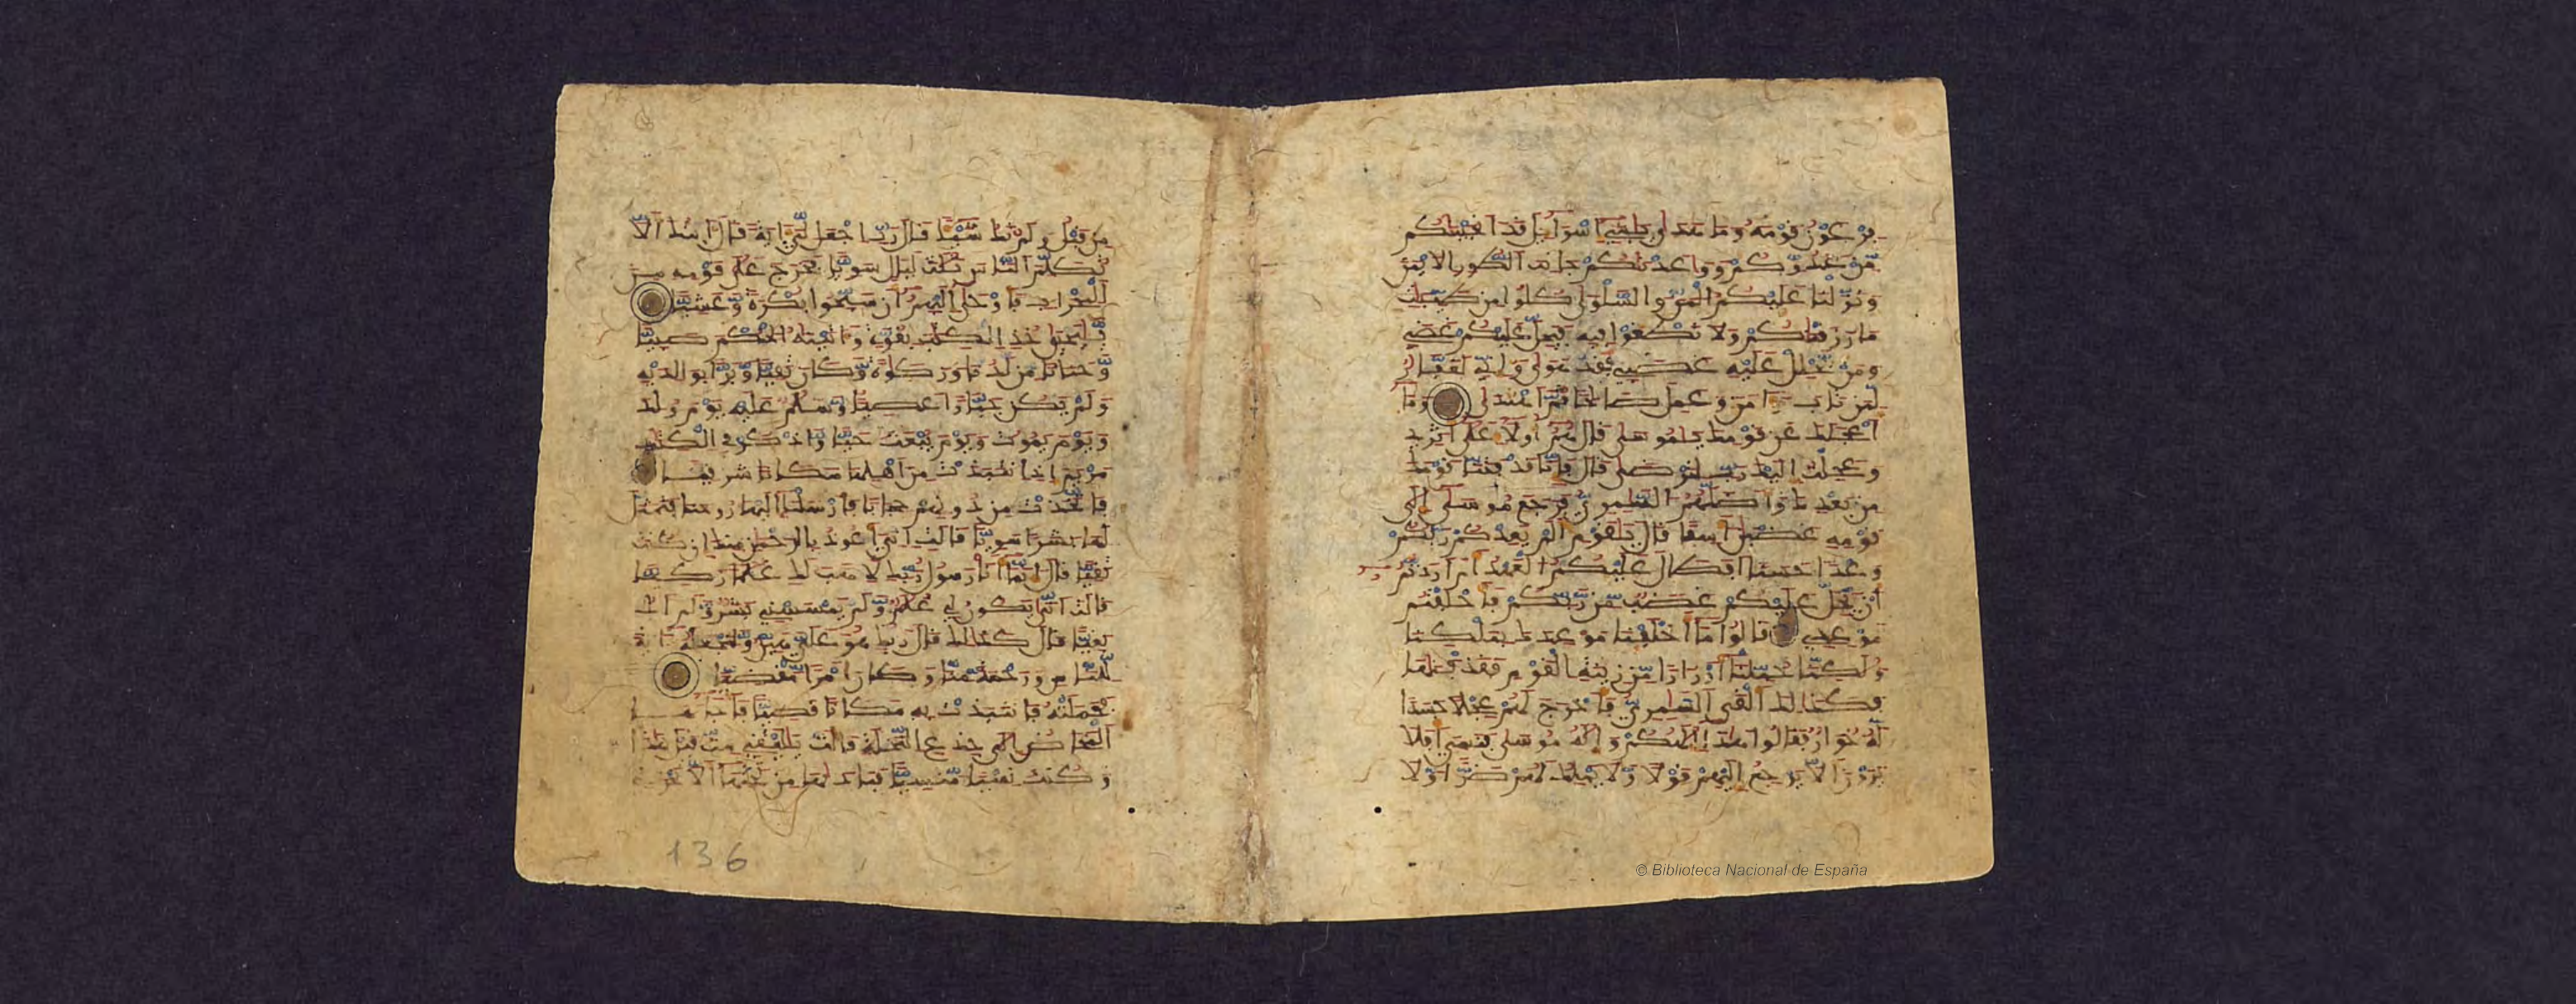 فرعون قومه وما هدى يبني اسراءيل قد انجينكم
من عدوكم وواعدنكم جانب الطور الايمن
ونزلنا عليكم المن والسلوى كلوا من طيبت
ما رزقناكم ولا تطغوا فيه فيحل عليكم غضبي
ومن يحلل عليه غضبي فقد هوى واني لغفار
لمن تاب وءامن وعمل صالحا ثم اهتدى وما
اعجلك عن قومك يموسى قال هم اولاء على اثري
وعجلت اليك رب لترضى قال فانا قد فتنا قومك
من بعدك واضلهم السامري فرجع موسى الى
قومه غضبن اسفا قال يقوم الم يعدكم ربكم
وعدا حسنا افطال عليكم العهد ام اردتم
ان يحل عليكم غضب من ربكم فاخلفتم
موعدي قالوا ما اخلفنا موعدك بملكنا
ولكنا حملنا اوزارا من زينة القوم فقذفنها
فكذلك القى السامري فاخرج لهم عجلا جسدا
له خوار فقالوا هذا الهكم واله موسى فنسي افلا
يرون الا يرجع اليهم قولا ولا يملك لهم ضرا ولا
من قبل ولم تك شيئا قال رب اجعل لي ءاية قال ءايتك الا
تكلم الناس ثلث ليال سويا فخرج على قومه من
المحراب فاوحى اليهم ان سبحوا بكرة وعشيا
ييحيى خذ الكتب بقوة وءاتينه الحكم صبيا
وحنانا من لدنا وزكوة وكان تقيا وبرا بوالديه
ولم يكن جبارا عصيا وسلم عليه يوم ولد
ويوم يموت ويوم يبعث حيا واذكر في الكتب
مريم اذ انتبذت من اهلها مكانا شرقيا
فاتخذت من دونهم حجابا فارسلنا اليها روحنا فتمثل
لها بشرا سويا قالت اني اعوذ بالرحمن منك ان كنت
تقيا قال انما انا رسول ربك لاهب لك غلما زكيا
قالت انى يكون لي غلم ولم يمسسني بشر ولم اك
بغيا قال كذلك قال ربك هو علي هين ولنجعله ءاية
للناس ورحمة منا وكان امرا مقضيا
فحملته فانتبذت به مكانا قصيا فاجاءها
المخاض الى جذع النخلة قالت يليتني مت قبل هذا
وكنت نسيا منسيا فنادىها من تحتها الا تحزني
136
© Biblioteca Nacional de España